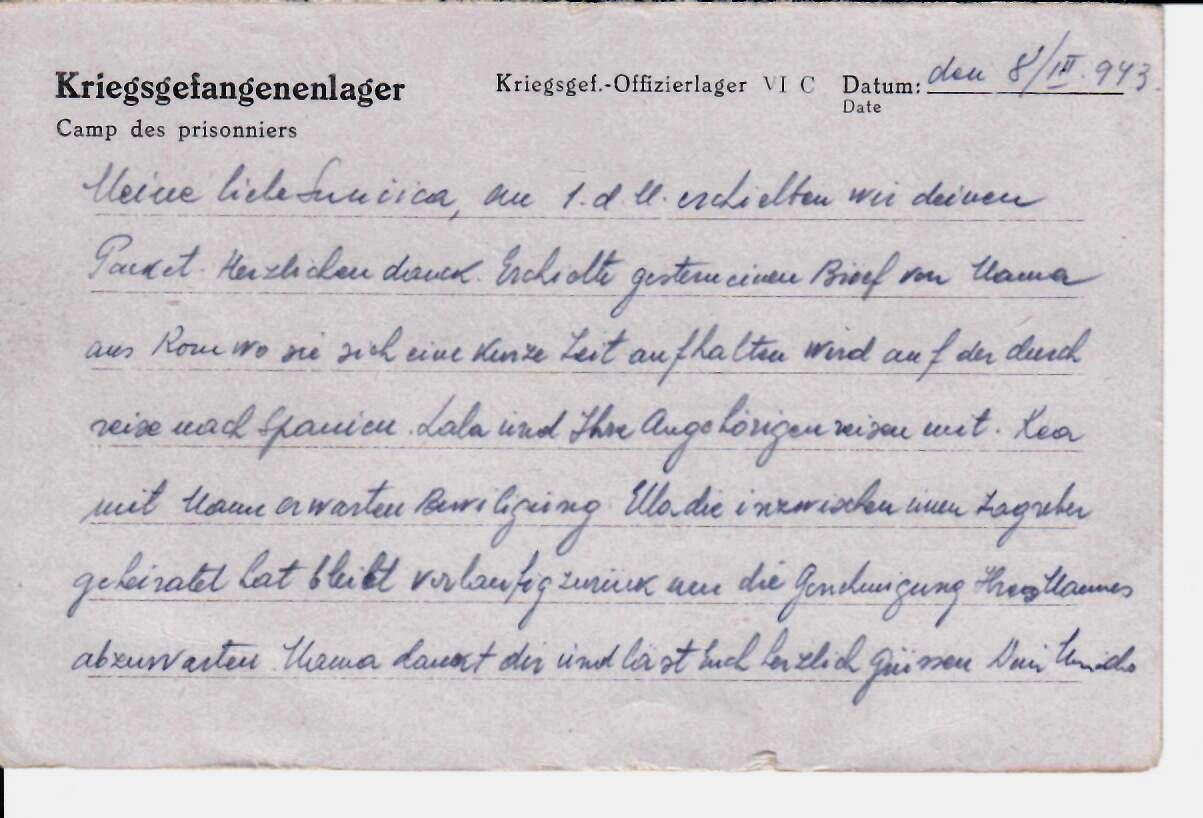 Kriegsgefangenenlager
Camp des prisonniers
Kriegsgef.-Offizierlager VI C
Datum: den 8/III. 943.
Date
Meine liebe Sunčica, am 1. d M. erhielten wir deinen
Paket. Herzlichen danck. Erhielte gestern einen Brief von Mama
aus Rom wo sie sich eine Kurze Zeit aufhalten wird auf der durch
reise nach Spanien. Lala und Ihre Angehörigen reisen mit. Kea
mit Mann erwarten Bewiligung. Ella die inzwischen einen Zagreber
geheiratet hat bleibt vorlaufig zurück um die Genehmigung Ihres Mannes
abzuwarten. Mama dankt dir und läst Euch herzlich Grüssen Dein